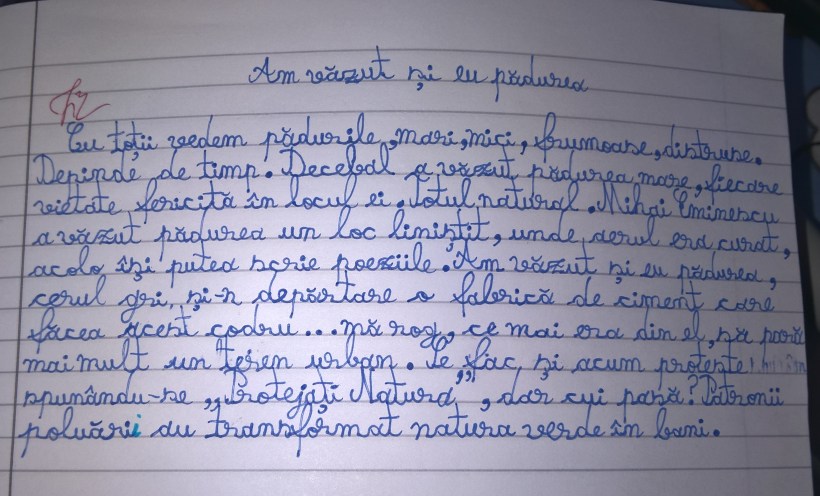 Am văzut și eu pădurea
Cu toții vedem pădurile, mari, mici, frumoase, distruse.
Depinde de timp. Decebal a văzut pădurea mare, fiecare
vietate fericită în locul ei. Totul natural. Mihai Eminescu
a văzut pădurea un loc liniștit, unde aerul era curat,
acolo își putea scrie poeziile. Am văzut și eu pădurea,
cerul gri, și-n depărtare o fabrică de ciment care
făcea acest codru... mă rog, ce mai era din el, să pară
mai mult un teren urban. Se fac și acum proteste
spunându-se „Protejați Natura”, dar cui pasă? Patronii
poluării au transformat natura verde în bani.